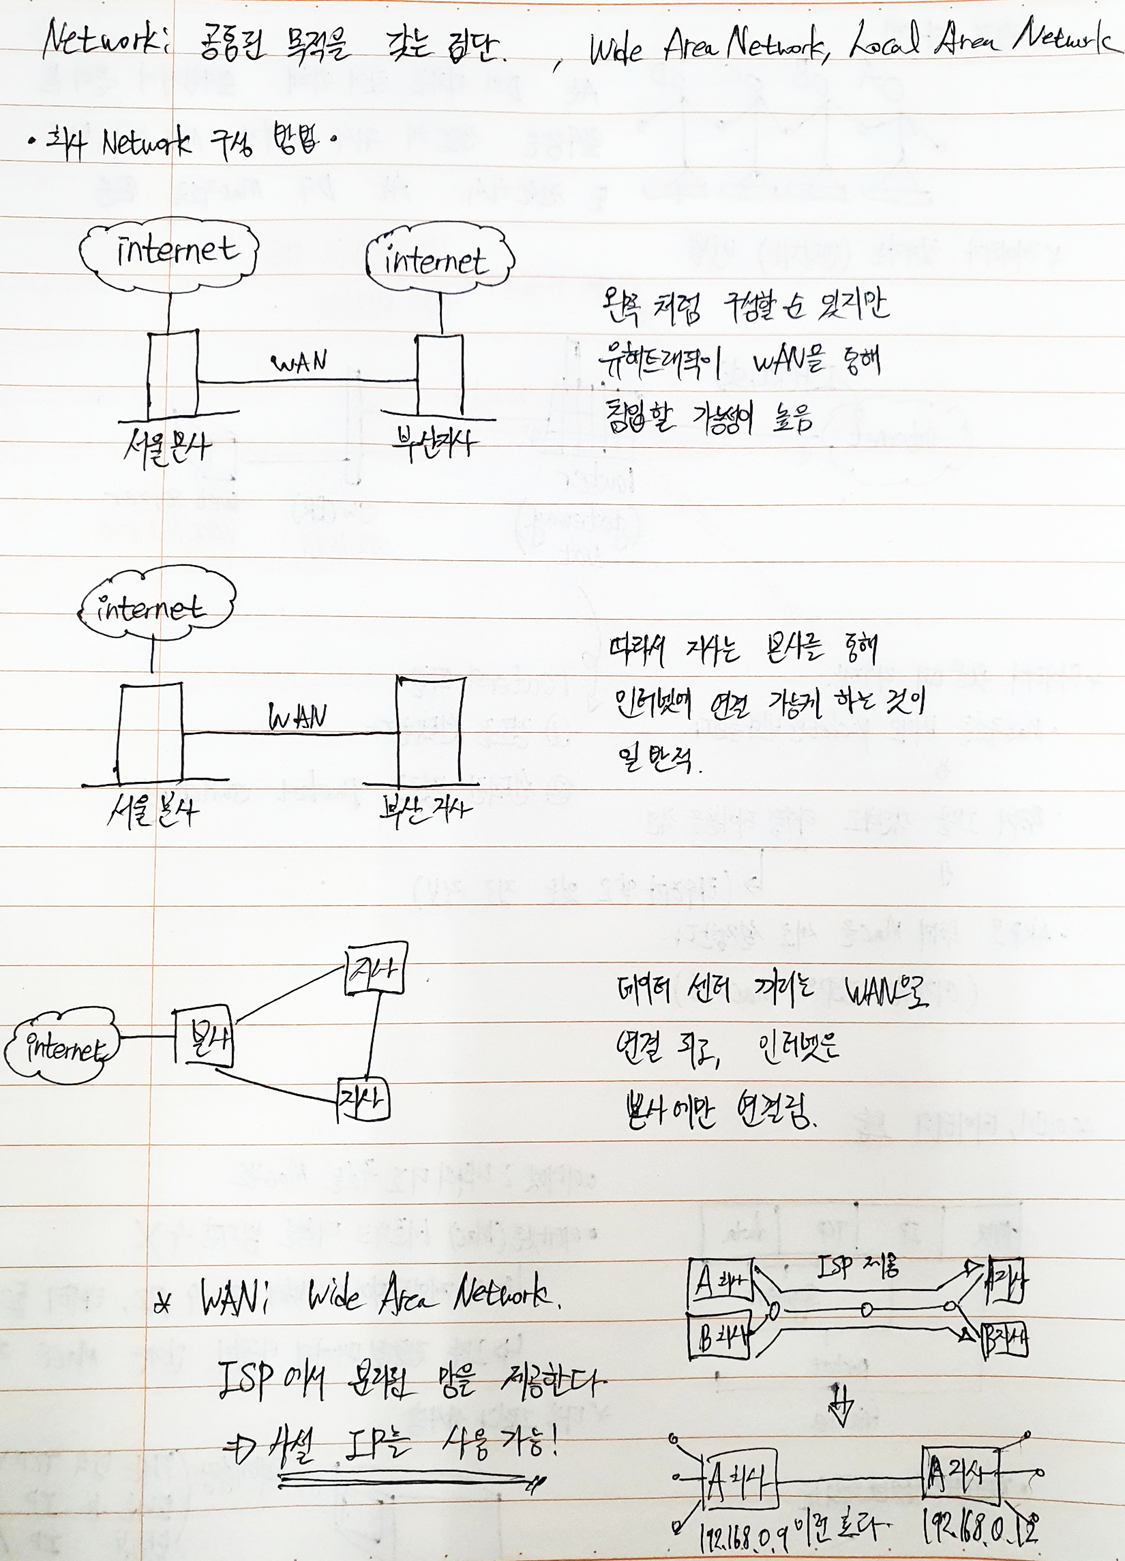 Network: 공통된 목적을 갖는 집단. , Wide Area Network, Local Area Network
· 회사 Network 구성 방법 ·
internet internet
WAN
서울 본사 부산지사
왼쪽 처럼 구성할 순 있지만
유해트래픽이 WAN을 통해
침입할 가능성이 높음
internet
WAN
서울 본사 부산 지사
따라서 지사는 본사를 통해
인터넷에 연결 가능케 하는 것이
일반적.
지사
internet 본사
지사
데이터 센터 끼리는 WAN으로
연결 되고, 인터넷은
본사에만 연결됨.
* WAN: Wide Area Network.
ISP에서 분리된 망을 제공한다.
⇒ 사설 IP는 사용 가능!
A회사 ISP 제공 A지사
B회사 B지사
A회사 A지사
192.168.0.9 이런 효과. 192.168.0.12